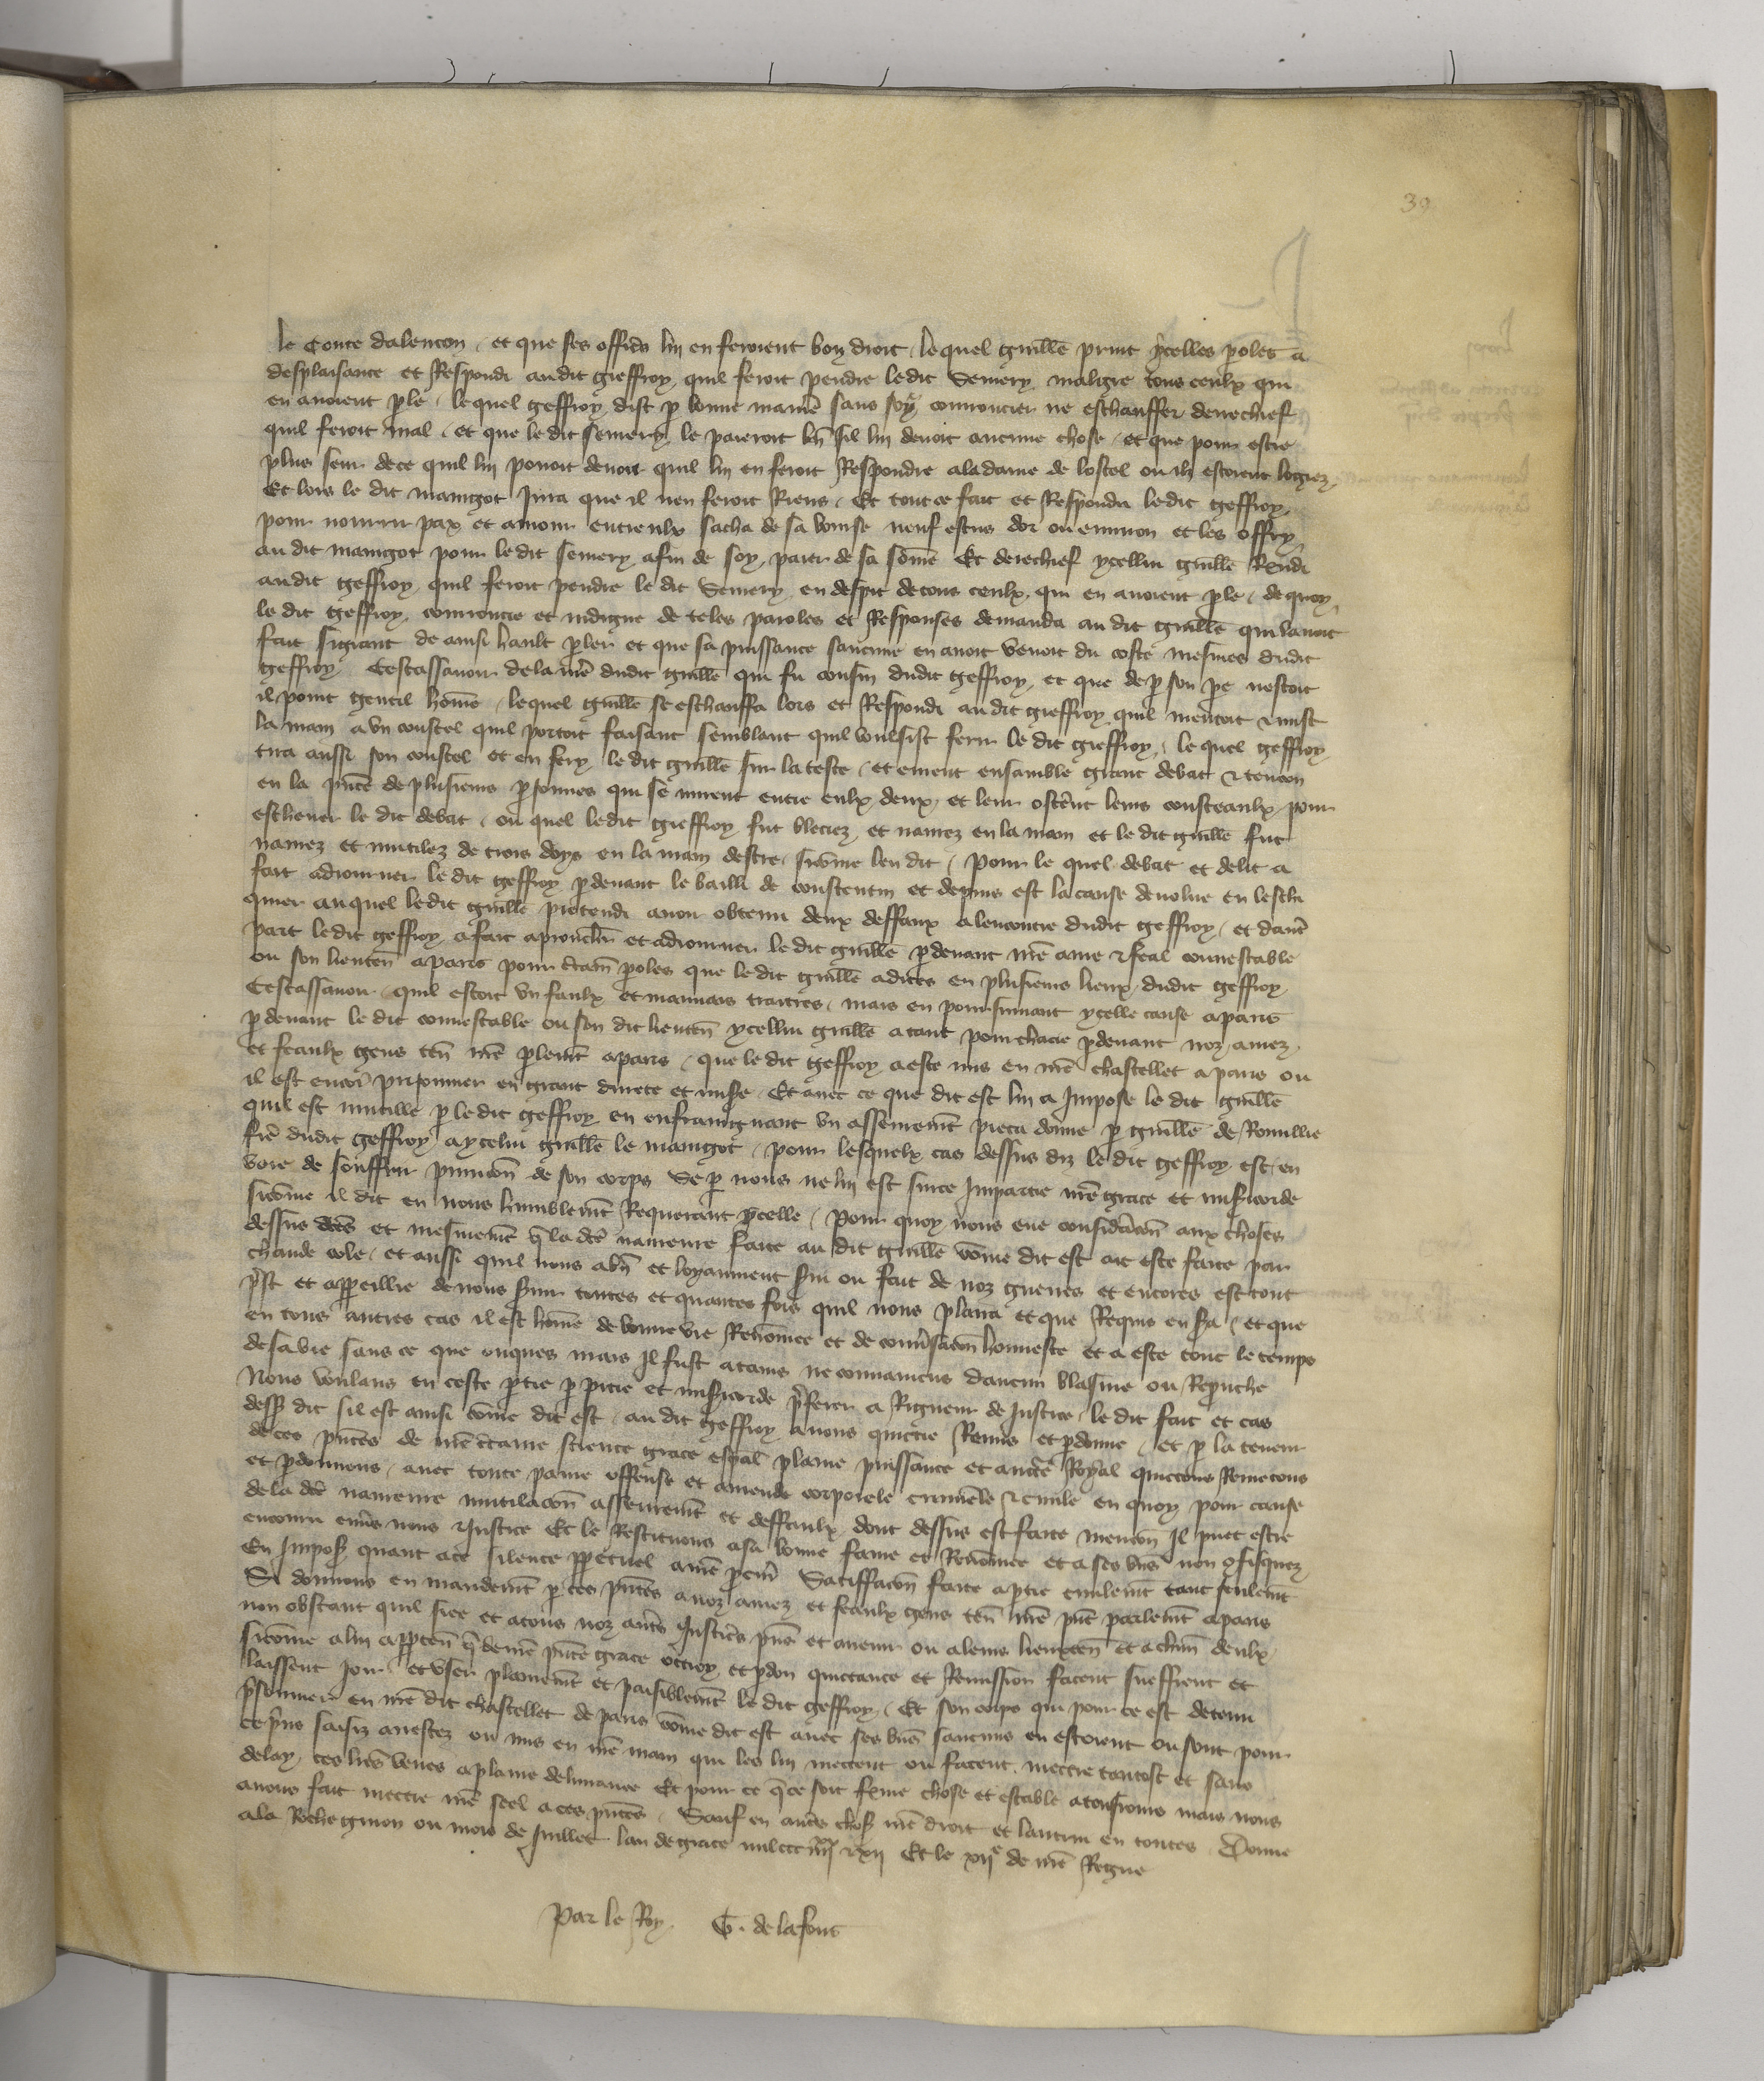 39
le Conte dalencon et que ses offics lui en feroient bon droit lequel guille print ycelles poles a
desplaisance et Respondi audit gieffroy quil feroit pendre ledit Semery malgre tous ceulx qui
en avoient ple lequel geffroy dist p bonne maniē sans soy courroucier ne eschauffer derechief
quil feroit mal et que le dit semery le paieroit bn sil lui devoit aucune chose et que pour estre
plus seur de ce quil lui povoit devoir quil lui en feroit Respondre ala dame de lostel ou ilz estoient logiez
Et lors le dit maingot Jura que il nen feroit Riens Et tout ce fait et Respondu ledit geffroy
pour nourrir pax et amour entreulx sacha de sa bourse neuf escus dor ou environ et les offry
au dit maingot pour ledit semery afin de soy paier de sa somē Et derechief ycellui guille Rndi
audit geffroy quil feroit pendre le dit Semery en despit de tous ceulx qui en avoient ple de quoy
le dit geffroy courroucie et indigne de teles paroles et Responses demanda au dit guille qui lavoit
fait si grant de ainsi hault pler et que sa puissance saucune en avoit venoit du coste mesmes dudit
geffroy Cestassavoir de la mē dudit guille qui fu cousin dudit geffroy et que de p son pe nestoit
il point gentil home lequel guille se eschauffa lors et Respondi au dit gieffroy quil mentoit & mist
la main a vn coustel quil portoit faisant semblant quil voulsist ferir le dit gieffroy le quel geffroy
tira aussi son coustel et en fery le dit guille sur la teste et eurent ensamble grant debat & tencon
en la pnce de plusieurs psonnes qui se mirent entre eulx deux et leur osterent leurs cousteaulx pour
eschever le dit debat ou quel ledit gieffroy fut bleciez et navrez en la main et le dit guille fut
navrez et mutilez de trois doys en la main destre sicome len dit Pour le quel debat et delit a
fait adiourner le dit geffroy pdevant le bailli de coustentin et depuis est la cause devolue en leschi
quier auquel ledit guille pretendi avoir obtenu deux deffaux alencontre dudit geffroy et dautre
part le dit geffroy a fait aprouchier et adiourner le dit guille pdevant nre ame & feal connestable
ou son lieuten a paris pour ctain poles que le dit guille a dites en plusieurs lieux dudit geffroy
Cestassavoir quil estoit vn faulx et mauvais traitres mais en poursuivant ycelle cause a paris
pdevant le dit connestable ou son dit lieuten ycellui guille a tant pourchacie pdevant noz amez
et feaulx gens ten nre plemt a paris que le dit geffroy a este mis en nre chastellet a paris ou
il est encor prisonnier en grant durete et misere Et avec ce que dit est lui a Impose le dit guille
quil est mutille p le dit geffroy en enfraingnant vn asseuremt pieca donne p guille de Romillie
fre dudit geffroy a ycelui guille le maingot Pour lesquelx cas dessus diz le dit geffroy est en
voie de souffrir punicon de son corps Se p nous ne lui est sur ce Impartie nre grace et misericorde
sicome il dit en nous humblemt Requerant ycelle Pour quoy nous eue considacon aux choses
dessus dtes et mesmemt q la dte navreure faite au dit guille come dit est ait este faite par
chaude cole et aussi quil nous a bn et loyaumt servi ou fait de noz guerres et encores est tout
pst et appeillie de nous servir toutes et quantes fois quil nous plaira et que Requis en sera et que
en tous autres cas il est home de bonne vie Renomee et de conversacon honneste et a este tout le temps
de sa vie sans ce que onques mais Il fust atains ne convaincus daucun blasme ou Repruche
Nous voulans en ceste ptie p pitie et misericorde pferer a Rigueur de Justice le dit fait et cas
dess dit sil est ainsi come dit est au dit geffroy avons quictie Remis et pdonne et p la teneur
de ces pntes de nre ctaine science grace espal plaine puissance et aucte Royal quictons Remetons
et pdonnons avec toute paine offense et amende corporele criminele & civile en quoy pour cause
de la dte navreure mutilacon asseuremt et deffaulx dont dessus est faite mencon Il puet estre
encouru envs nous & Justice Et le Restituons a sa bonne fame et Renomee et a ses bns non gfisquez
En Impos quant ace silence ppetuel a nre pcur Satiffacon faite a ptie civilemt tant seulemt
Si donnons en mandemt p ces pntes a noz amez et feaulx gens ten nre pnt parlemt a paris
non obstant quil siee et a tous noz aults Justicrs pns et avenir ou a leurs lieuxten et a chun deulx
sicome a lui apptien q de nre pnte grace octroy et pdon quictance et Remission facent sueffrent et
laissent Joir et vser plainemt et paisiblemt le dit geffroy Et son corps qui pour ce est detenu
psonnier en nre dit chastellet de paris come dit est avec ses bns saucuns en estoient ou sont pour
ce pris saisiz arrestez ou mis en nre main qui les lui mettent ou facent mettre tantost et sans
delay ces lres veues a plaine delivrance Et pour ce q ce soit ferme chose et estable atousiours mais nous
avons fait mettre nre seel a ces pntes Sauf en autres chos nre droit et lautrui en toutes Donne
ala Rocheguion ou mois de Juillet lan de grace mil ccc iiii xx & xii Et le xii e de nre Regne
Par le Roy G. de lafons